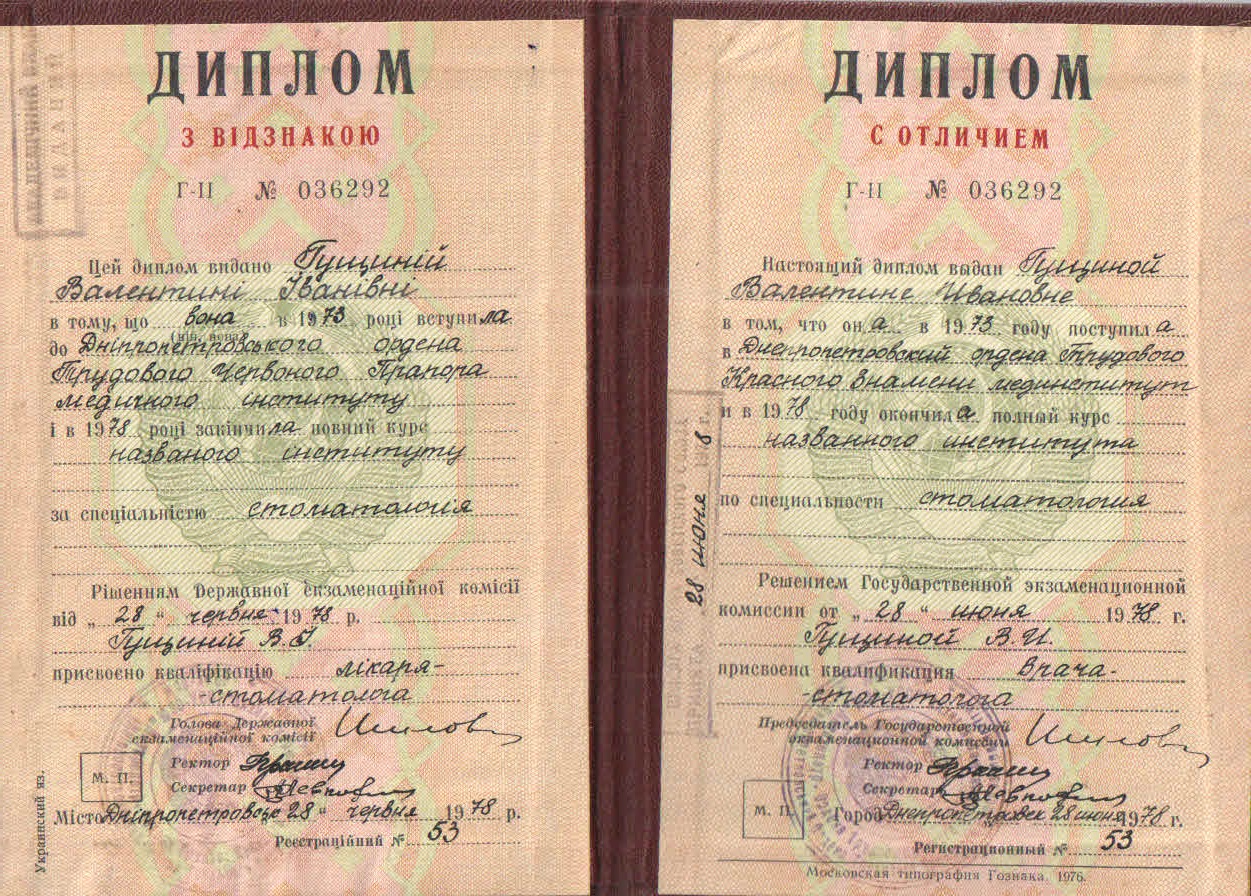 ДИПЛОМ
З ВІДЗНАКОЮ
Г-II № 036292
Цей диплом видано Гущиній
Валентині Іванівні
в тому, що вона в 1973 році вступила
до Дніпропетровського ордена
Трудового Червоного Прапора
медичного інституту
і в 1978 році закінчила повний курс
названого інституту
за спеціальністю стоматологія
Рішенням Державної екзаменаційної комісії
від „ 28 “ червня 1978 р.
Гущиній В.І.
присвоєно кваліфікацію лікаря-
-стоматолога
Голова Державної
екзаменаційної комісії
Ректор
М. П.
Секретар
Місто Дніпропетровськ 28 “ червня 1978 р.
Реєстраційний № 53
Украинский яз.
ДИПЛОМ
С ОТЛИЧИЕМ
Г-II № 036292
Настоящий диплом выдан Гущиной
Валентине Ивановне
в том, что она в 1973 году поступила
в Днепропетровский ордена Трудового
Красного Знамени мединститут
и в 1978 году окончила полный курс
названного института
по специальности стоматология
28 июня 1978 г.
Решением Государственной экзаменационной
комиссии от „ 28 “ июня 1978 г.
Гущиной В.И.
присвоена квалификация врача-
-стоматолога
Председатель Государственной
экзаменационной комиссии
Ректор
Секретарь
М. П.
Город Днепропетровск 28 июня 1978 г.
Регистрационный № 53
Московская типография Гознака. 1976.